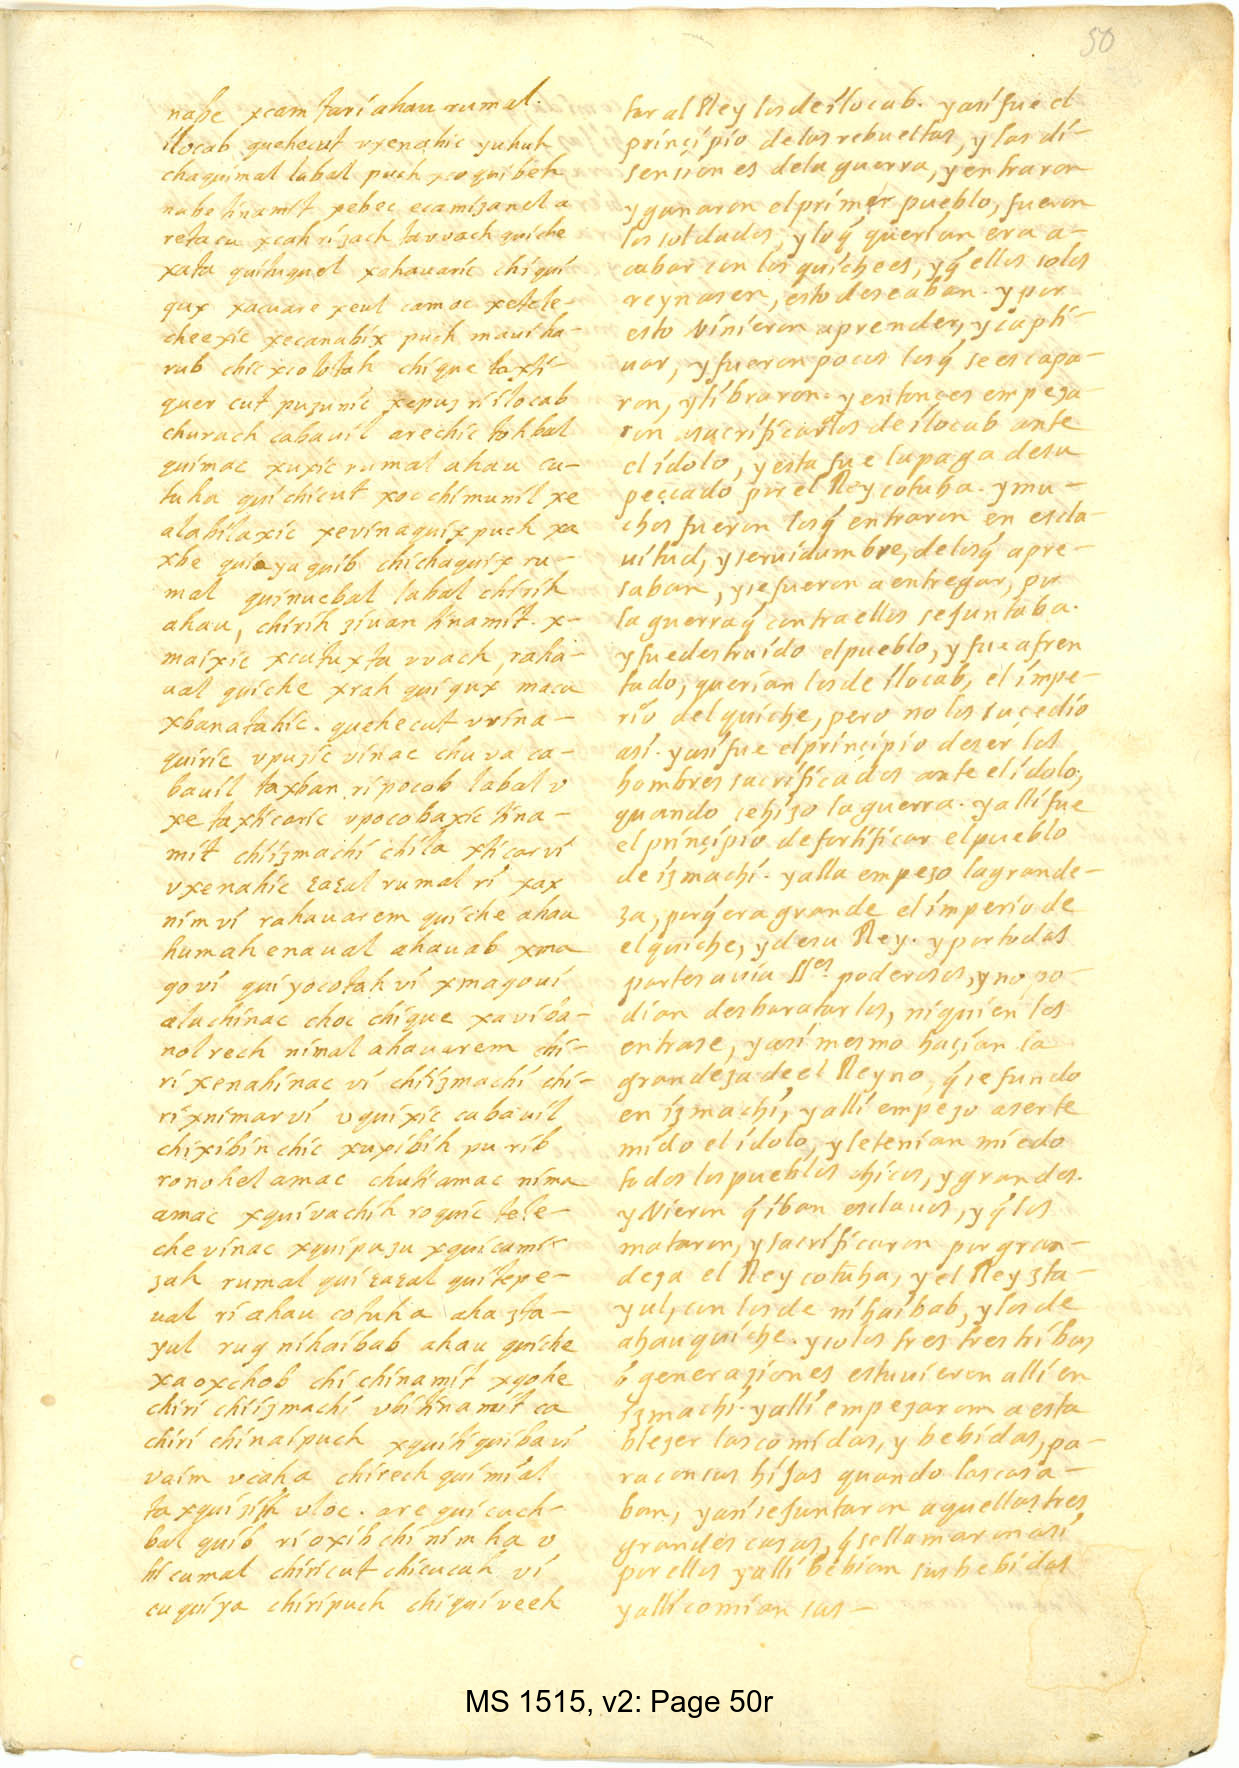 50
nabe xcam tari ahau rumal.
ilocab quehecut uxenahic yuhuh
chaquimal labal puch xoquibeh
nabe tinamit xebec ecamizanel a
retacu xcah rizach tauvach quiche
xata quituquel xahauaric chiqui
qux xacuare xeul camoc xetele-
cheexic xecanabix puch mauiha-
rub chic xcolotah chique taxti-
quer cut puzunic xepuz ri ilocab
chuvach cabauil arechic tohbal
quimac xuxic rumal ahau co-
tuha quichicut xoc chi munil xe
alabilaxic xevinaquix puch xa
xbe quiya quib chichaquix ru-
mal quinucbal labal chirih
ahau, chirih ziuan tinamit. x-
maixic xcutuxta uvach, raha-
ual quiche xrah qui qux macu
xbanatahic. quehecut uvina-
quiric upuzic vinac chuva ca-
bauil taxban ri pocob labal v
xe taxticaric upocobaxic tina-
mit chiizmachi chila xticarvi
uxenahic cacal rumal ri xax
nim vi rahauarem quiche ahau
humah enaual ahauab xma
govi qui yocotah vi xmagoui
aluchinac choc chique xavi ba-
nol rech nimal ahauarem chi-
ri xenahinac vi chiizmachi chi-
ri xnimarvi uquixic cabauil
chixibin chic xuxibih pu rib
ronohel amac chuti amac nima
amac xquivachih roquic tele-
che vinac xquipuzu xquicami-
zah rumal qui cacal quitepe-
ual ri ahau cotuha aha zta-
yul ruq nihaibab ahau quiche
xaoxchob chi chinamit xqohe
chiri chiizmachi ubi tinamit ca
chiri chinaipuch xquitiquiba vi
vaim ucaha chirech quimial
ta xquizih uloc. are qui cuch-
bal quib ri oxib chi nim ha v
bi cumal chiricut chicucah vi
cuquiya chiripuch chiquiveeh
tar al Rey los de ilocab. y asi fue el
prinçipio de las rebueltas, y las di-
sensiones de la guerra, y entraron
y ganaron el primer pueblo, fueron
los soldados, y lo q̃ querian era a-
cabar con los quichees, y q̃ ellos solos
reynasen, esto deseaban. y por
esto Vinieron aprender, y capti-
uar, y fueron pocos los q̃ se escapa-
ron, y libraron. y entonçes empeza-
ron asacrificarlos de ilocab ante
el idolo, y esta fue la paga desu
peccado por el Rey cotuha. y mu-
chos fueron los q̃ entraron en escla-
uitud, y seruidumbre, de los q̃ apre-
saban, y se fueron a entregar, por
la guerra q̃ contra ellos se juntaba.
y fue destruido el pueblo, y fue afren
tado, querian los de ilocab, el impe-
rio del quiche, pero no los suçedio
asi. y asi fue el prinçipio de ser los
hombres sacrificados ante el idolo,
quando se hizo la guerra. y alli fue
el prinçipio de fortificar el pueblo
de izmachi. y alla empezo la grande-
za, porq̃ era grande el imperio de
el quiche, y desu Rey. y por todas
partes auia SSes. poderosos, y no po-
dian desbaratarlos, ni quien los
entrase, y asi mesmo haçian la
grandeza de el Reyno, q̃ se fundo
en izmachi, y alli empezo aserte
mido el idolo, y le tenian miedo
todos los pueblos chicos, y grandes.
y Vieron q̃ iban esclauos, y q̃ los
mataron, y sacrificaron por gran-
deza el Rey cotuha, y el Rey zta-
yul, con los de nihaibab, y los de
ahau quiche. y solos tres tres tribus
ô generaziones estuuieron alli en
izmachi. y alli empezaron a esta
blezer las comidas, y bebidas, pa-
ra con sus hijas quando las casa-
ban, y asi se juntaron aquellas tres
grandes casas, q̃ se llamaron asi
por ellos y alli bebian sus bebidas
y alli comian sus-
MS 1515, v2: Page 50r